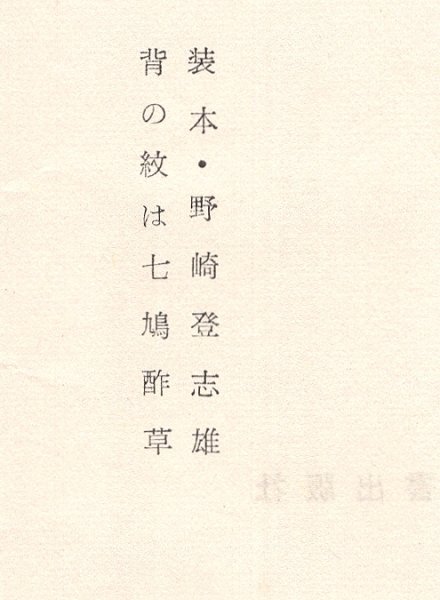 装本・野崎登志雄
背の紋は七鳩酢草